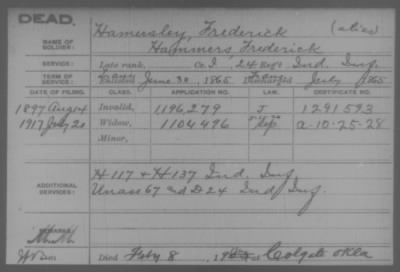 DEAD.
Hamersley, Frederick (alias)
NAME OF SOLDIER: Hammers, Frederick
SERVICE: Late rank, Co. I, 24 Reg't Ind. Inf.
TERM OF SERVICE: Enlisted June 30, 1865 Discharged July, 1865
DATE OF FILING. CLASS. APPLICATION NO. LAW. CERTIFICATE NO.
1897 Aug 4 Invalid, 1196,279 J 1291593
1917 July 20 Widow, 1104496 a-10-25-28
Minor,
ADDITIONAL SERVICES: H 117 & H 137 Ind. Inf.
Unass 67 and D 24 Ind. Inf.
REMARKS:
Died Feby 8, at Colgate Okla